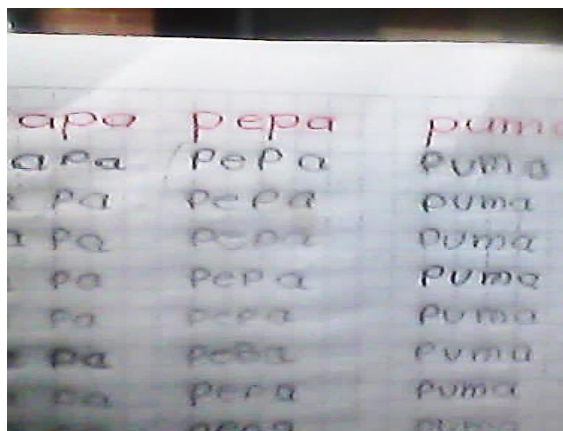 apa pepa puma
apa pepa puma
pa pepa puma
a pa pepa puma
pa pepa puma
pa pepa puma
pa pepa puma
pa pepa puma
pepa puma